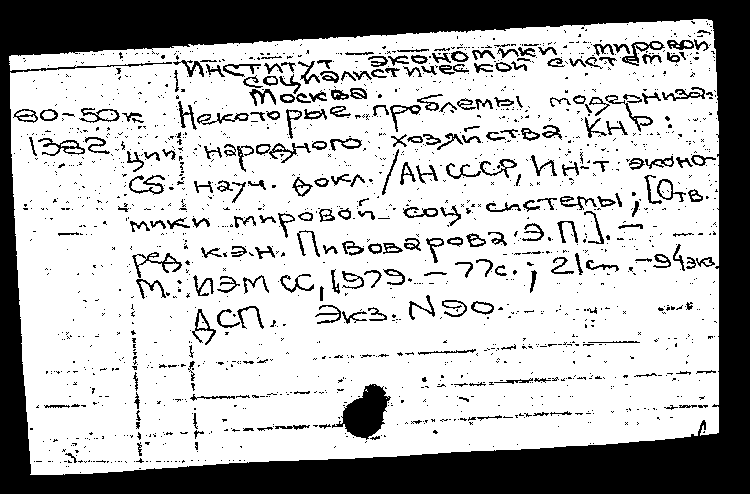 Институт экономики мировой
социалистической системы.
Москва.
80-50к Некоторые проблемы модерниза-
1382 ции народного хозяйства КНР:
Сб. науч. докл. / АН СССР, Ин-т эконо-
мики мировой соц. системы; [Отв.
ред. к.э.н. Пивоварова Э.П.]. —
М.: ИЭМСС, 1979. - 77с.; 21см. - 94экз.
ДСП. Экз. N 90.